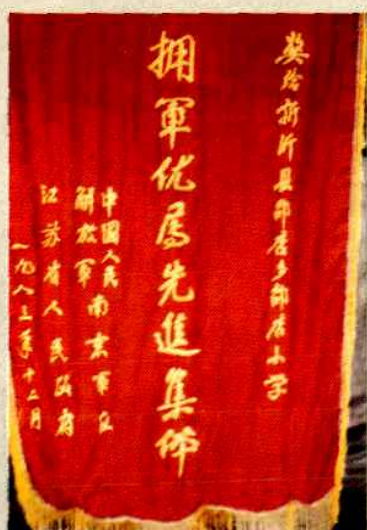 奖给新沂县邵店乡邵店小学
拥軍优属先進集体
中國人民
解放军
南京军区
江苏省人民政府
一九八三年十二月